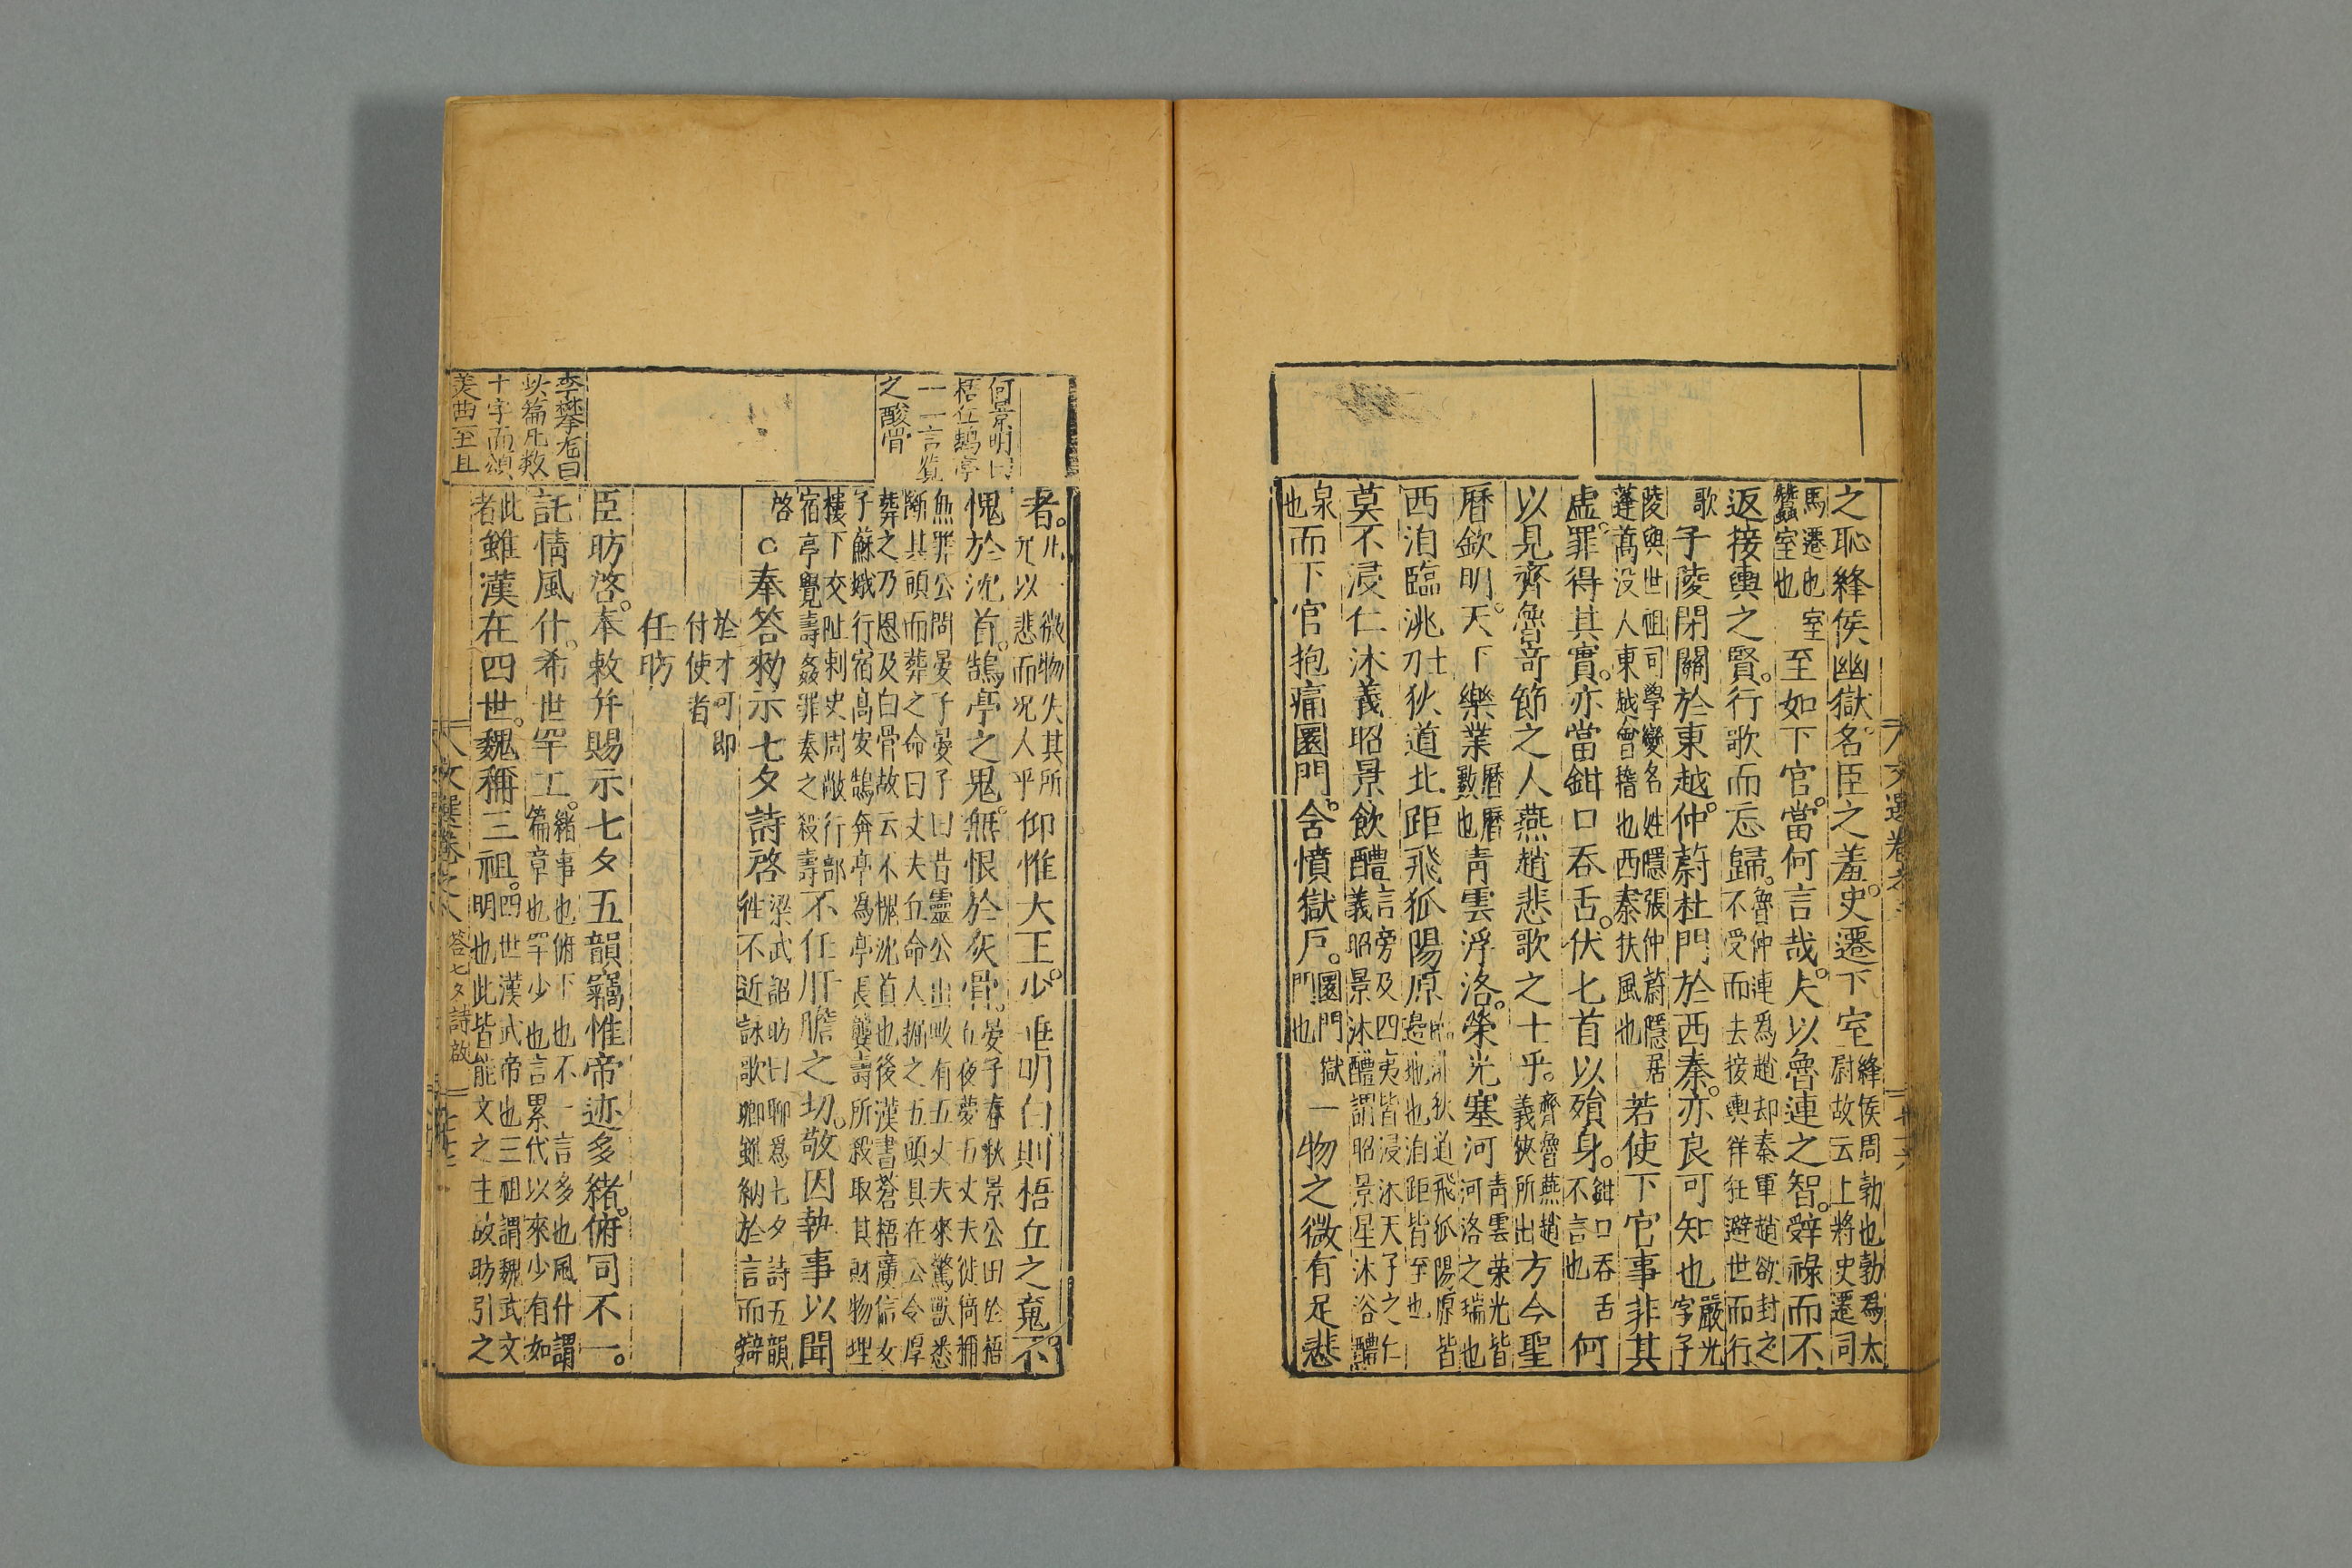 之恥絳侯幽獄名臣之羞。史遷下室絳侯周勃也勃爲太尉故云上將史遷司
馬遷也室蠶室也至如下官。當何言哉。夫以魯連之智。辭祿而不
返接輿之賢。行歌而忘歸。魯仲連爲趙却秦軍趙欲封之不受而去接輿佯狂避世而行
歌子陵閉關於東越。仲蔚杜門於西秦。亦良可知也嚴光字子
陵與世祖同學變名姓隱張仲蔚隱居蓬蒿没人東越會稽也西秦扶風也若使下官事非其
虛。罪得其實。亦當鉗口吞舌。伏七首以殞身。鉗口吞舌不言也何
以見齊魯奇節之人燕趙悲歌之士乎。齊魯燕趙義俠所出方今聖
曆欽明。天下樂業曆曆數也青雲浮洛。榮光塞河青雲榮光皆河洛之瑞也
西洎臨洮狄道北距飛狐陽原臨洮狄道飛狐陽原皆邊地也洎距皆至也
莫不浸仁沐義昭景飲醴言旁及四夷皆浸沐天子之仁義昭景沐醴謂昭景星沐浴醴
泉也而下官抱痛圜門。含憤獄戶。圜門獄門也一物之微有足悲
者。微物失其所以悲而况人乎仰惟大王少垂明白則梧丘之䰟不
愧於沈首。鵠亭之鬼。無恨於灰骨。晏子春秋景公田於梧丘夜夢五丈夫徙倚稱
無罪公問晏子晏子曰昔靈公出畋有五丈夫來驚獸悉斷其頭而葬之命曰丈夫丘命人掘之五頭具在公令厚
葬之乃恩及白骨故云不愧沈首也後漢書蒼梧廣信女子蘇娥行宿高安鵠奔亭爲亭長龔壽所殺取其財物埋
樓下交阯刺史周敞行部宿亭覺壽姦罪奏之殺壽不任肝膽之切。敬因執事以聞
啓○奉答勑示七夕詩啓梁武詔昉曰聊爲七夕詩五韻殊不近詠歌卿雖納於言而辯
於才可即付使者
任昉
臣昉啓。奉敕并賜示七夕五韻竊惟帝迹多緒。俯同不一。
託情風什。希世罕工。緒事也俯下也不一言多也風什謂篇章也罕少也言累代以來少有如
此者雖漢在四世。魏稱三祖。四世漢武帝也三祖謂魏武文明也此皆能文之主故昉引之
何景明曰
梧丘鵠亭
一一言覽
之酸骨
李攀龍曰
此篇凡数
十字而頌
美曲至且
文選卷之
答七夕詩啟